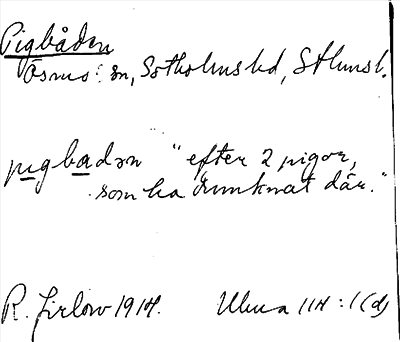 Pigbåden
Ösmo sn, Sotholms hd, Sthlmsl.
pigbadən "efter 2 pigor,
som ha drunknat där."
R. Jirlow 1914.
114:1(d)